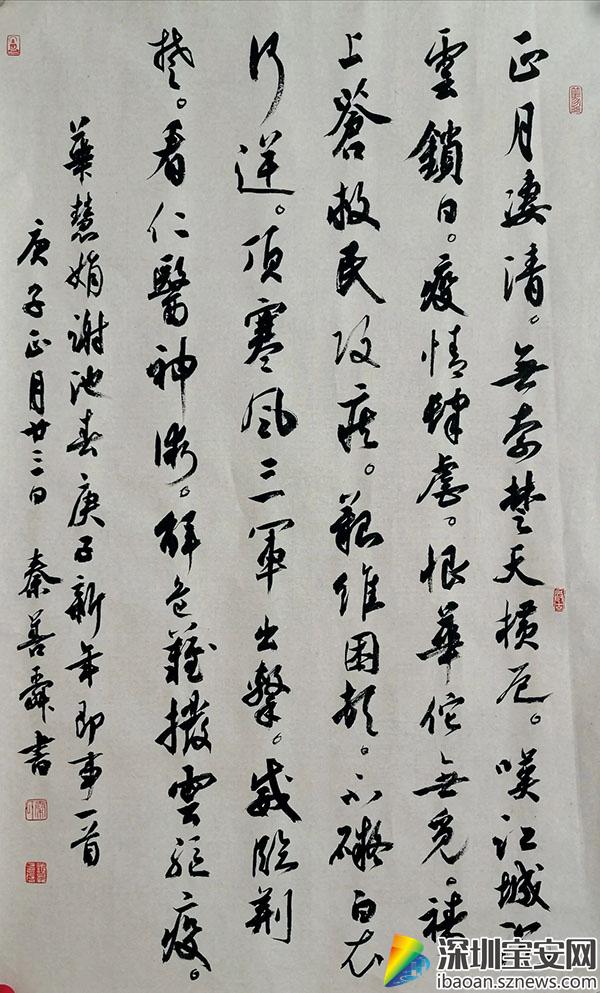 正月凄清。無奈楚天横厄。嘆江城
雲鎖日。疫情肆虐。恨華佗無覓。禱
上蒼救民攻疾。艱維困頓。不礙白衣
行逆。頂寒風三軍出擊。威臨荆
楚。看仁醫神術。解危難撥雲驅疫。
華慧娟謝池春庚子新年即事一首
庚子正月廿三日 秦善舜書
深圳宝安网
ibaoan.sznews.com